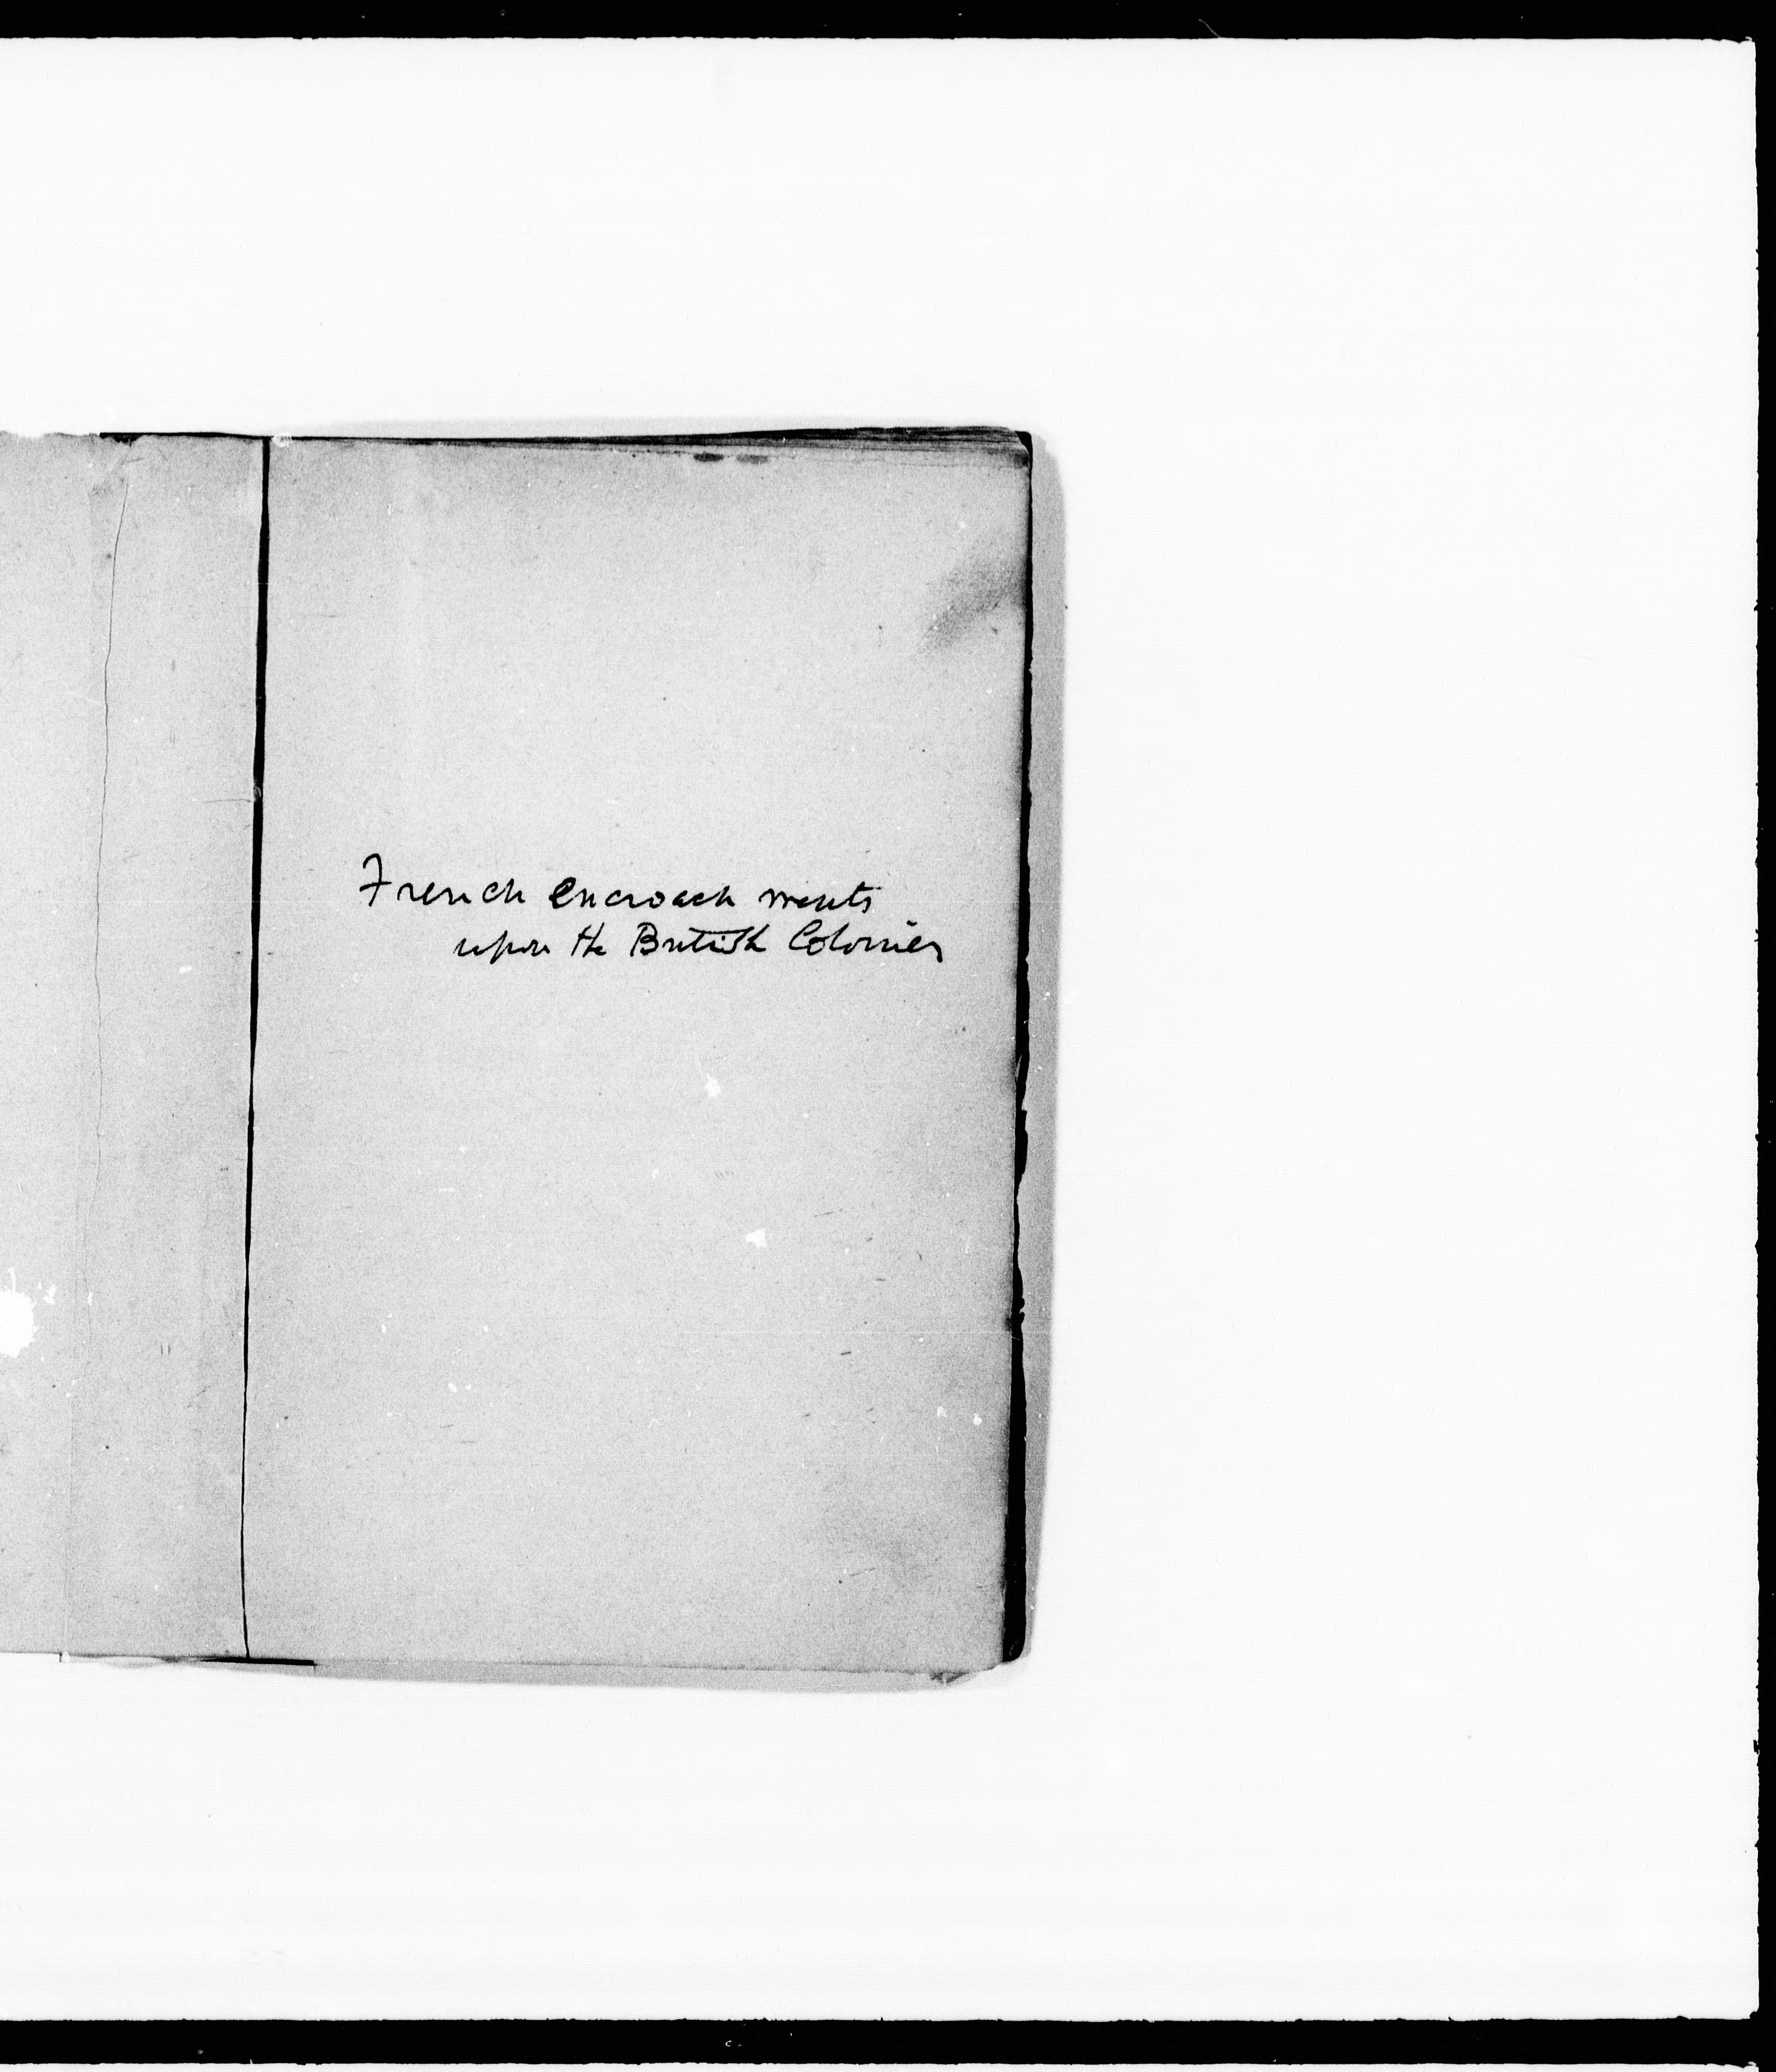 French encroachments
upon the British Colonies